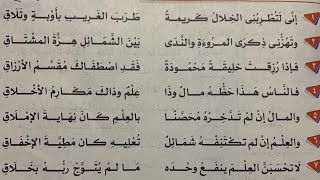 إنى لتطربنى الخلال كريمة طرب الغريب بأوبة وتلاق
٢ وتهزنى ذكرى المروءة والندى بين الشمائل هزة المشتاق
٣ فإذا رزقت خليقة محمودة فقد اصطفاك مقسم الأرزاق
٤ فالناس هذا حظه مال وذا علم وذاك مكارم الأخلاق
٥ والمال إن لم تدخره محصنا بالعلم كان نهاية الإملاق
٦ والعلم إن لم تكتنفه شمائل تعليه كان مطية الإخفاق
٧ لاتحسبن العلم ينفع وحده ما لم يتوج ربه بخلاق